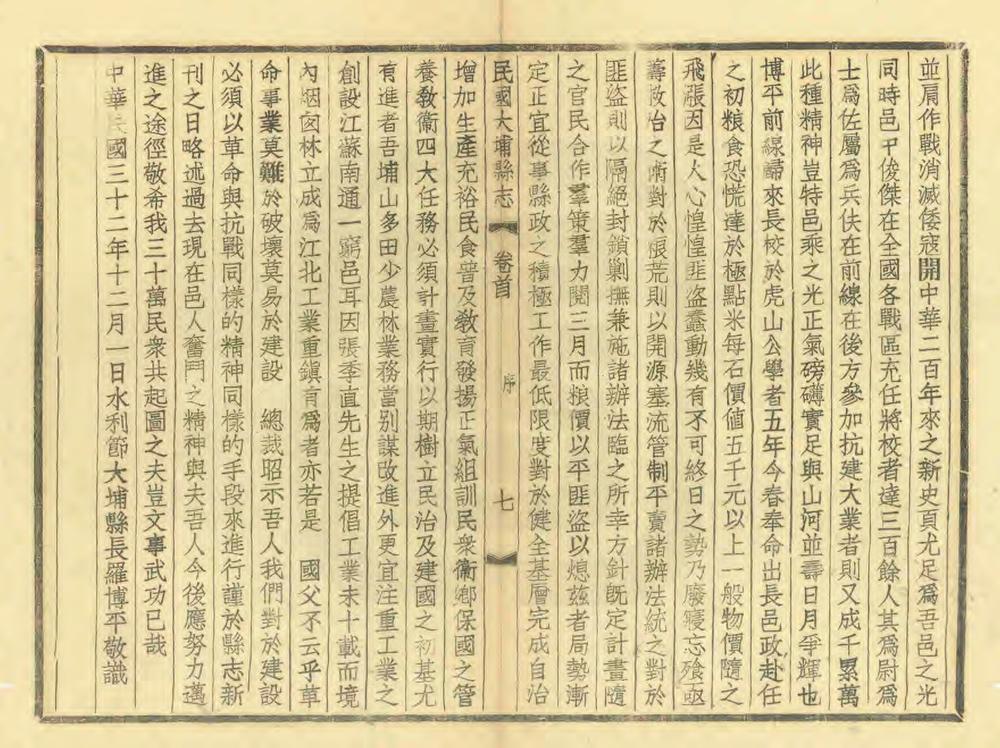 並肩作戰消滅倭寇開中華二百年來之新史頁尤足為吾邑之光
同時邑中俊傑在全國各戰區充任將校者達三百餘人其為尉為
士為佐屬為兵伕在前線在後方參加抗建大業者則又成千累萬
此種精神豈特邑乘之光正氣磅礴實足與山河並壽日月爭輝也
博平前線歸來長校於虎山公學者五年今春奉命出長邑政赴任
之初粮食恐慌達於極點米每石價值五千元以上一般物價隨之
飛漲因是人心惶惶匪盜蠢動幾有不可終日之勢乃廢寢忘飱亟
籌救治之術對於張荒則以開源塞流管制平賣諸辦法統之對於
匪盜則以隔絕封鎖剿撫兼施諸辦法臨之所幸方針既定計畫隨
之官民合作羣策羣力閱三月而粮價以平匪盜以熄茲者局勢漸
定正宜從事縣政之積極工作最低限度對於健全基層完成自治
民國大埔縣志 卷首 序 七
增加生產充裕民食普及教育發揚正氣組訓民衆衞鄉保國之管
養教衛四大任務必須計畫實行以期樹立民治及建國之初基尤
有進者吾埔山多田少農林業務當别謀改進外更宜注重工業之
創設江蘇南通一窮邑耳因張季直先生之提倡工業未十載而境
內烟囪林立成為江北工業重鎮有為者亦若是 國父不云乎革
命事業莫難於破壞莫易於建設 總裁昭示吾人我們對於建設
必須以革命與抗戰同樣的精神同樣的手段來進行謹於縣志新
刊之日略述過去現在邑人奮鬥之精神與夫吾人今後應努力邁
進之途徑敬希我三十萬民衆共起圖之夫豈文事武功已哉
中華民國三十二年十二月一日水利節大埔縣長羅博平敬識